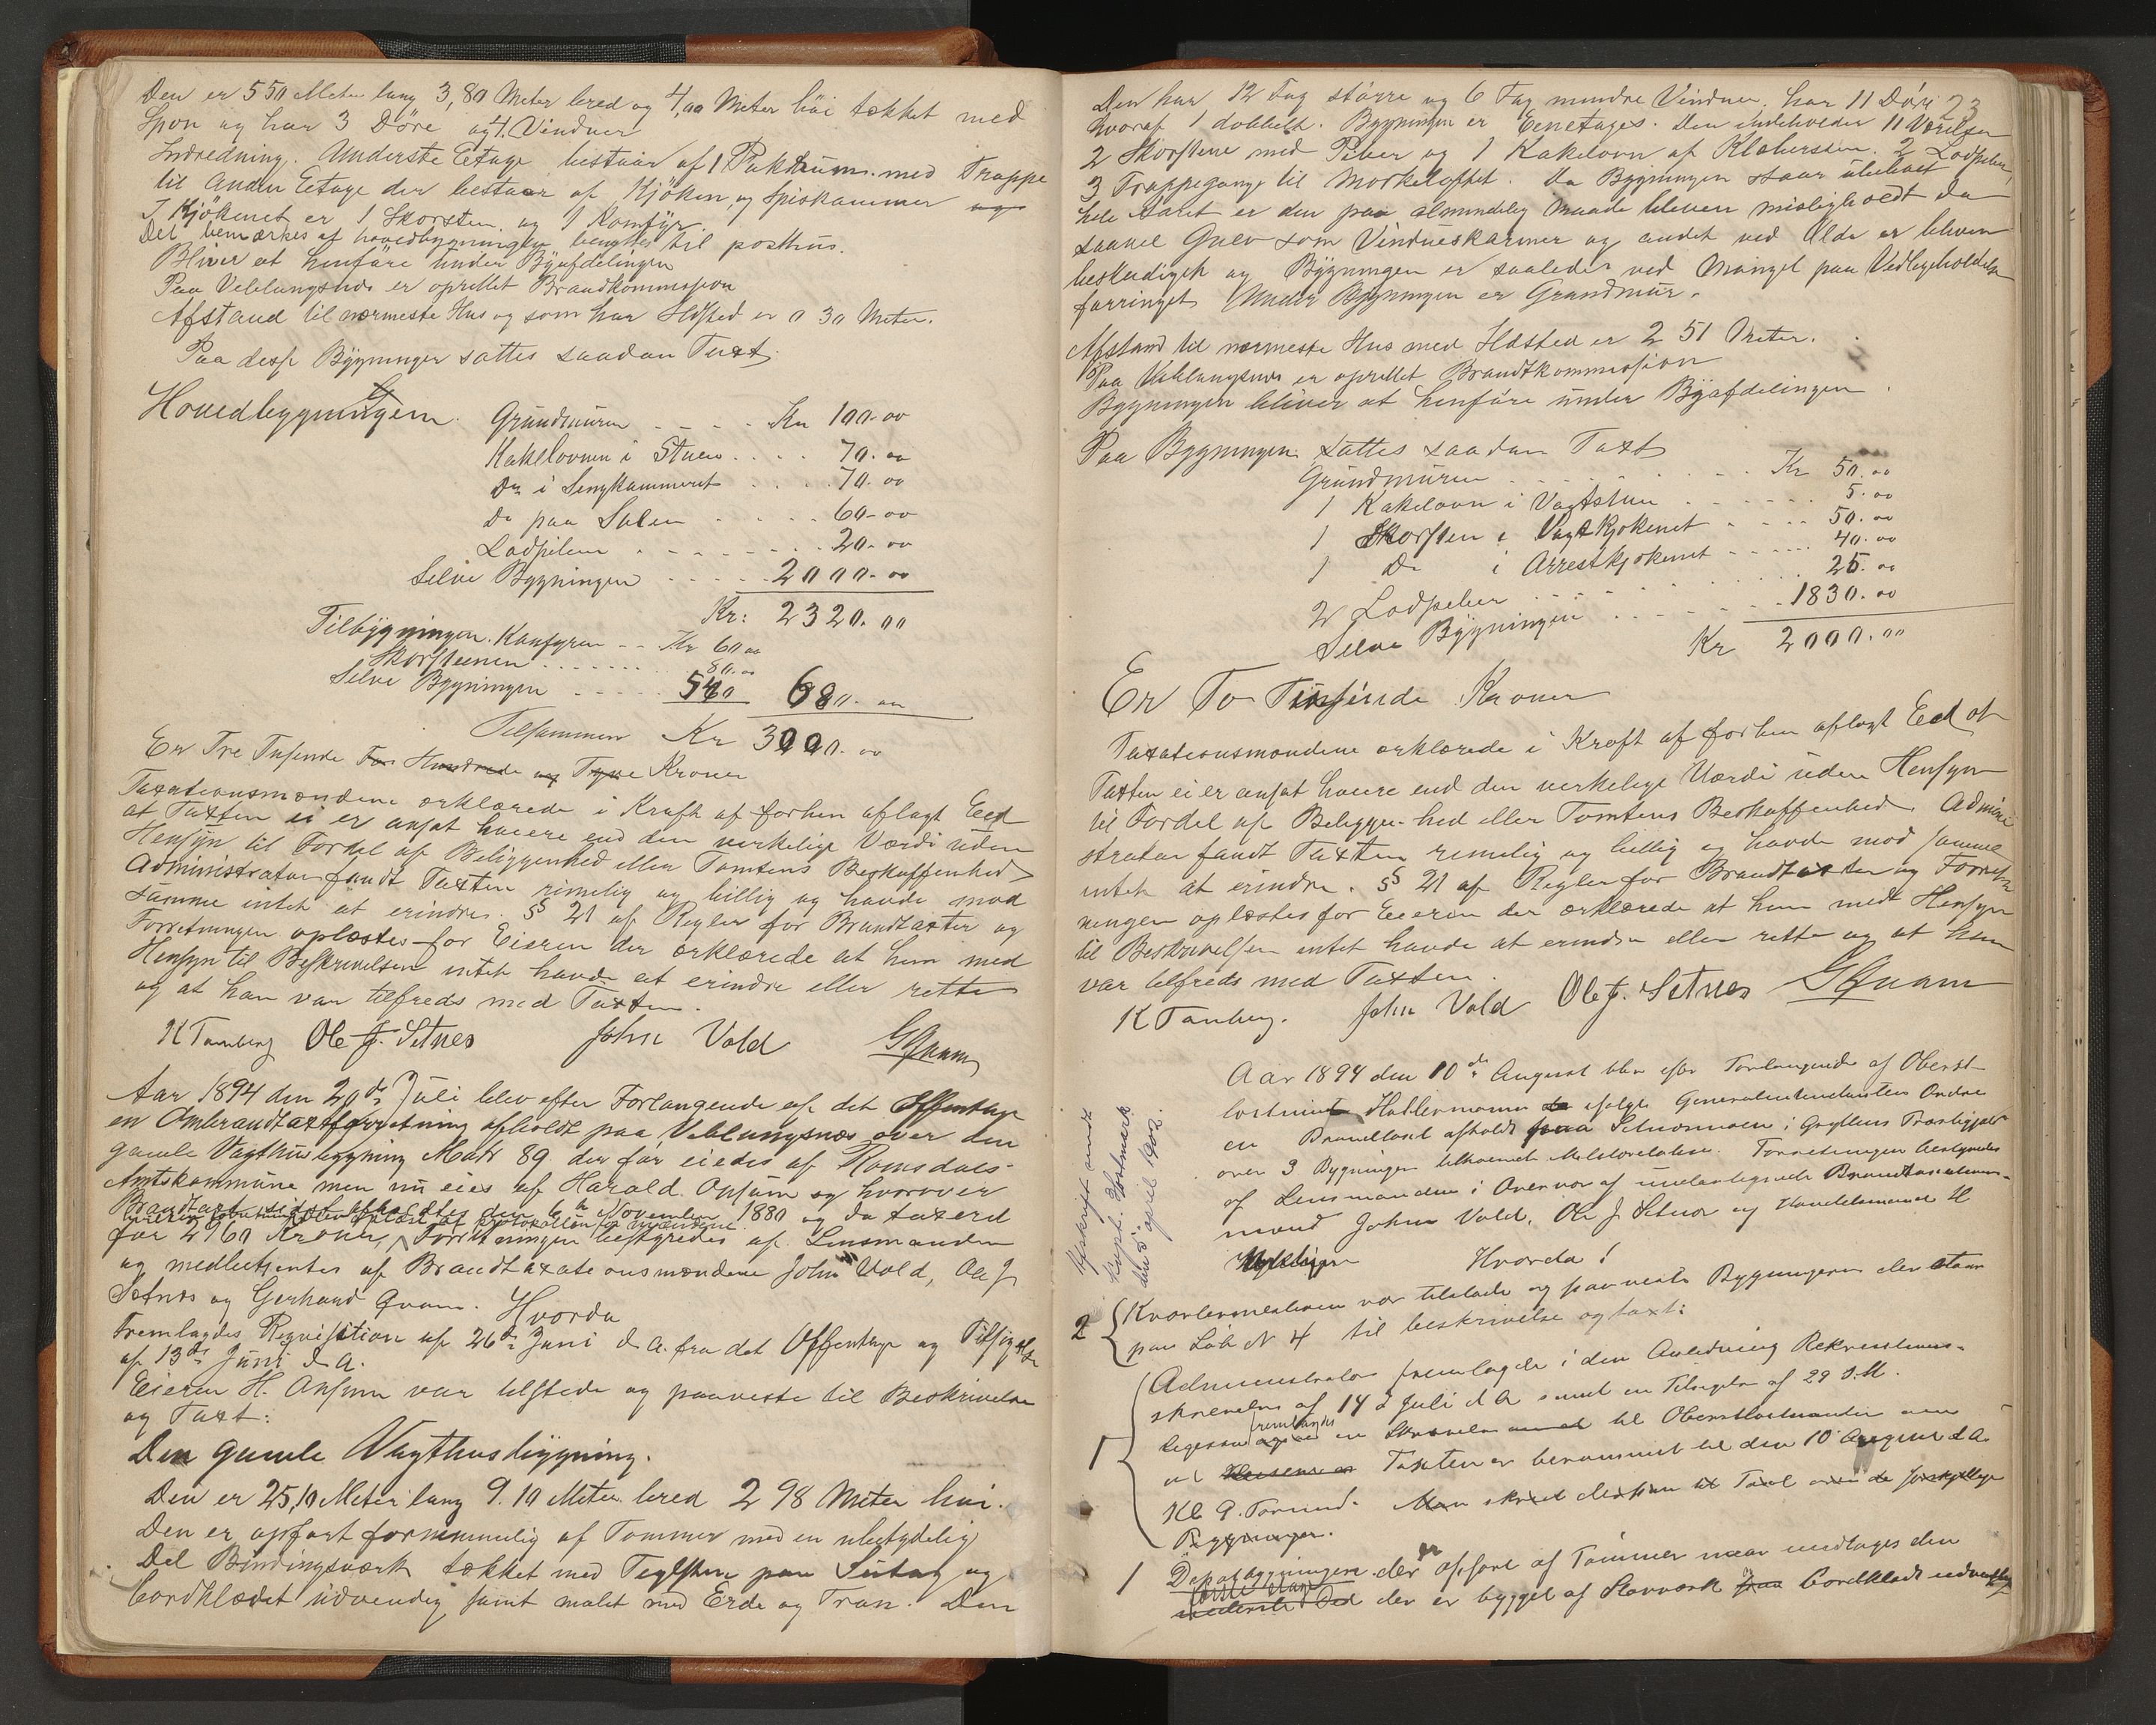 Den er 550 Meter lang 3,80 Meter bred og 4,00 Meter höi tækket med
Spon og har 3 Döre og 4 Vinduer
Indredning. Underste Etage bestaar af 1 Pakkrum med Trappe
til Anden Etage der bestaar af Kjöken og Spiskammer og
I Kjökenet er 1 Skorsten og 1 Komfyr.
Det bemærkes at hovedbygningen benyttes til posthus.
Bliver at henføre under Byafdelingen
Paa Veblungsnes er oprettet Brandkommission
Afstand til nærmeste Hus og som har Ildsted er 0 30 Meter.
Paa disse Bygninger sattes saadan Taxt:
Hovedbygningen. Grundmuren Kr 100.00
Kakelovnen i Stuen 70.00
Do i Sengkammeret 70.00
Do paa Salen 60.00
Lodpiben 20.00
Selve Bygningen 2000.00
Kr: 2320.00
Tilbygningen. Komfyren Kr 60.00
Skorstenen 80.00
Selve Bygningen 540 680.00
Tilsammen Kr 3000.00
Er Tre Tusende Tre Hundrede og Tyve Kroner
Taxationsmændene erklærede i Kraft af forhen aflagt Eed
at Taxten ei er ansat høiere end den virkelige Værdi uden
Hensyn til Fordel af Beliggenhed eller Tomtens Beskaffenhed
Administrator fandt Taxten rimelig og billig og havde mod
samme intet at erindre. §§ 21 af Regler for Brandtaxter og
Forretningen oplæstes for Eieren der erklærede at han med
Hensyn til Beskrivelsen intet havde at erindre eller rette
og at han var tilfreds med Taxten.
K Tanberg Ole J. Setnes John Vold GQvam
Aar 1894 den 20de Juli blev efter Forlangende af det Offentlige
en Ombrandtaxtforretning afholdt paa Veblungsnes over den
gamle Vagthusbygning Matr 89 der før eiedes af Romsdals
Amtskommune men nu eies af Harald Opsum og hvorover
Brandtaxt sidst afholdtes den 6te November 1880 og da taxerd
for 2960 Kroner, Forretningen bestyredes af Lensmanden
og medbetjentes af Brandtaxationsmændene John Vold, Ole J
Setnes og Gerhard Qvam. Hvorda
Fremlagdes Reqvisition af 26de Juni d. A. fra det Offentlige og Tilsigelse
af 13de Juni d. A.
Eieren H. Opsum var tilstede og paaviste til Beskrivelse
og Taxt:
Den gamle Vagthusbygning.
Den er 25,10 Meter lang 9.10 Meter bred 2 98 Meter høi.
Den er opført fornemmelig af Tømmer med en ubetydelig
Del Bindingsværk tækket med Teglsten paa Sutag og
bordklædet udvendig samt malet med Erde og Tran. Den
23
Den har 12 Fag større og 6 Fag mindre Vinduer, har 11 Döre
hvoraf 1 dobbelt. Bygningen er Eenetages. Den indeholder 11 Værelser
2 Skorstene med Piber og 1 Kakelovn af Klebersten. 2 Lodpiber,
3 Trappegange til Mørkeloftet. Da Bygningen staar ubeboet
hele Aaret er den paa almindelig Maade bleven misligholdt da
saavel Gulv som Vindueskarmer og andet ved Ælde er bleven
beskadiget og Bygningen er saaledes ved Mangel paa Vedligeholdelse
forringet. Under Bygningen er Grundmur.
Afstand til nærmeste Hus med Ildsted er 2 51 Meter.
Paa Veblungsnes er oprettet Brandtkommission
Bygningen bliver at henføre under Byafdelingen
Paa Bygningen sattes saadan Taxt
Grundmuren Kr 50.00
1 Kakelovn i Vagtstuen 5.00
1 Skorsten i Vagtkjøkenet 50.00
1 Do i Arrestkjøkenet 40.00
2 Lodpiber 25.00
Selve Bygningen 1830.00
Kr 2000.00
Er To Tusinde Kroner
Taxationsmændene erklærede i Kraft af forhen aflagt Eed at
Taxten ei er ansat høiere end den virkelige Værdi uden Hensyn
til Fordel af Beliggenhed eller Tomtens Beskaffenhed. Admini
strator fandt Taxten rimelig og billig og havde mod samme
intet at erindre. §§ 21 af Regler for Brandtaxter og Forret
ningen oplæstes for Eieren der erklærede at han med Hensyn
til Beskrivelsen intet havde at erindre eller rette og at han
var tilfreds med Taxten.
K Tanberg. John Vold Ole J. Setnes GQvam
Aar 1894 den 10de August blev efter Forlangende af Oberst
løitnant Hallermann ifølge Generalintendantens Ordre
en Brandtaxt afholdt paa Setnesmoen i Gryttens Præstegjæld
over 3 Bygninger tilhørende Militæretaten. Forretningen bestyredes
af Lensmanden i Overvær af undertegnede Brandtaxations-
mænd John Vold, Ole J Setnes og Handelsmand H
Hvorda!
Afskrift sendt
Kapt. Holmark
den 5 april 1902.
2 Kvartermesteren var tilstede og paaviste Bygningerne der staar
paa Løb N 4 til beskrivelse og taxt:
1 Administrator fremlagde i den Anledning Rekvisitions-
skrivelse af 14 d Juli d A samt en Tilsigelse af 29 s.M.
ligesaa fremlagdes en Skrivelse til Oberstløitnanten om
at Taxten er berammet til den 10 August d A.
Kl 9 Formd. Man skred derhen til Taxt over de forskjellige
Bygninger.
1 Depotbygningen der er opført af Tømmer naar undtages den
første Etage der er bygget af Stavværk bordklædt udvendig